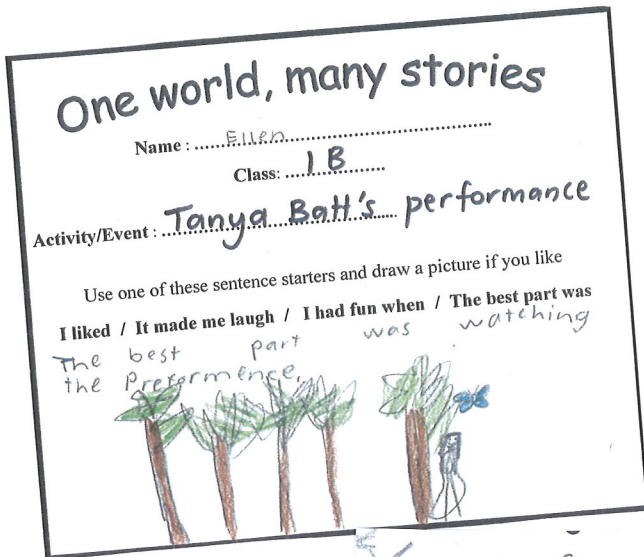 One world, many stories
Name : Ellen
Class: 1B
Activity/Event : Tanya Batt's performance
Use one of these sentence starters and draw a picture if you like
I liked / It made me laugh / I had fun when / The best part was
The best part was watching
the Preformence.